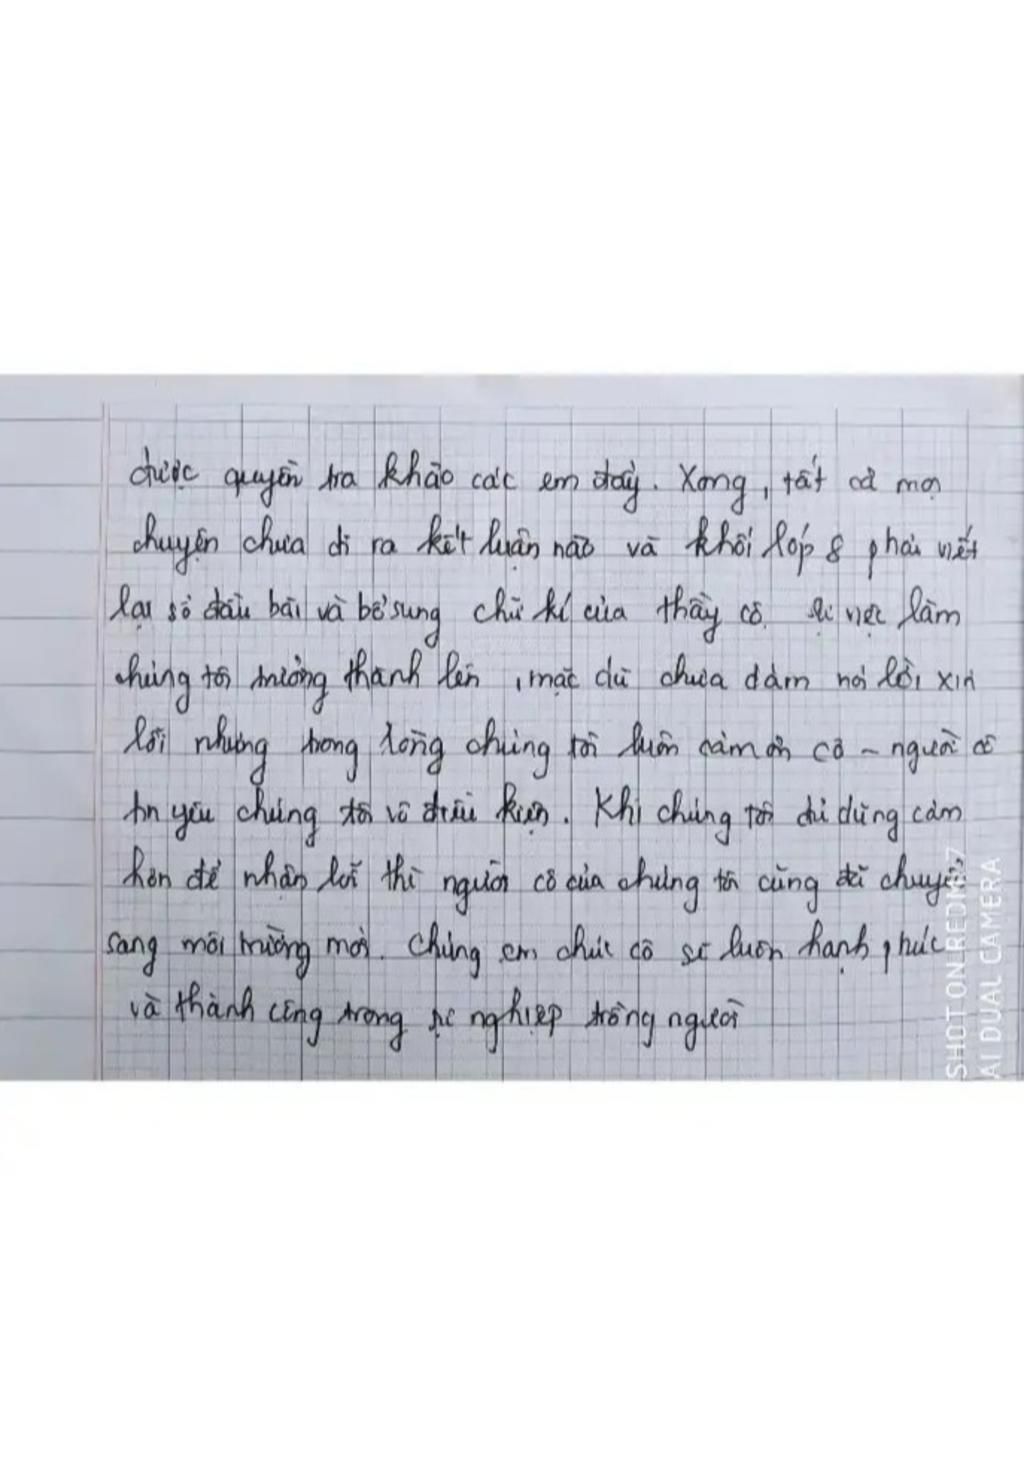 được quyền tra khảo các em đấy. Xong, tất cả mọi
chuyện chưa đi ra kết luận nào và khối lớp 8 phải viết
lại sổ đầu bài và bổ sung chữ kí của thầy cô. Sự việc làm
chúng tôi trưởng thành lên, mặc dù chưa dám nói lời xin
lỗi nhưng trong lòng chúng tôi luôn cảm ơn cô - người cô
tin yêu chúng tôi vô điều kiện. Khi chúng tôi đủ dũng cảm
hơn để nhận lỗi thì người cô của chúng tôi cũng đã chuyển
sang môi trường mới. Chúng em chúc cô sẽ luôn hạnh phúc
và thành công trong sự nghiệp trồng người
SHOT ON REDMI 7
AI DUAL CAMERA